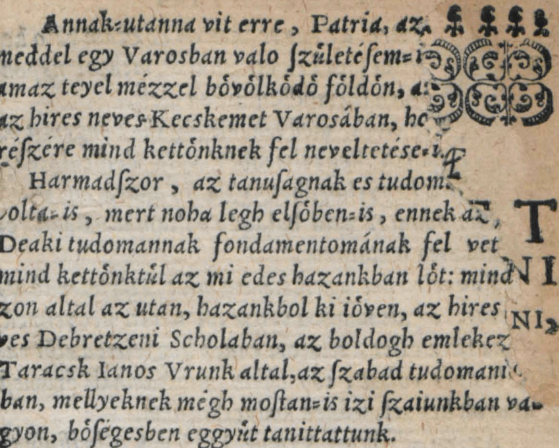 Annak-utanna vit erre, Patria, az
neddel egy Varosban valo ſzületéſem-
amaz teyel mézzel bövölködö földön,
az hires neves Kecskemet Varosában, ho
réſzére mind kettönknek fel neveltetése-
Æ
Harmadſzor, az tanuſagnak es tudom
volta-is, mert noha legh elſöben-is, ennek az
T
Deaki tudomannak fondamentomának fel vet
mind kettönktül az mi edes hazankban löt: mind
NI
zon altal az utan, hazankbol ki iöven, az hires
NI
ves Debretzeni Scholaban, az boldogh emlekez
Taracsk Ianos Vrunk altal, az ſzabad tudomani
ban, mellyeknek mégh moſtan-is izi ſzaiunkban va-
gyon, böſegesben eggyüt tanittattunk.